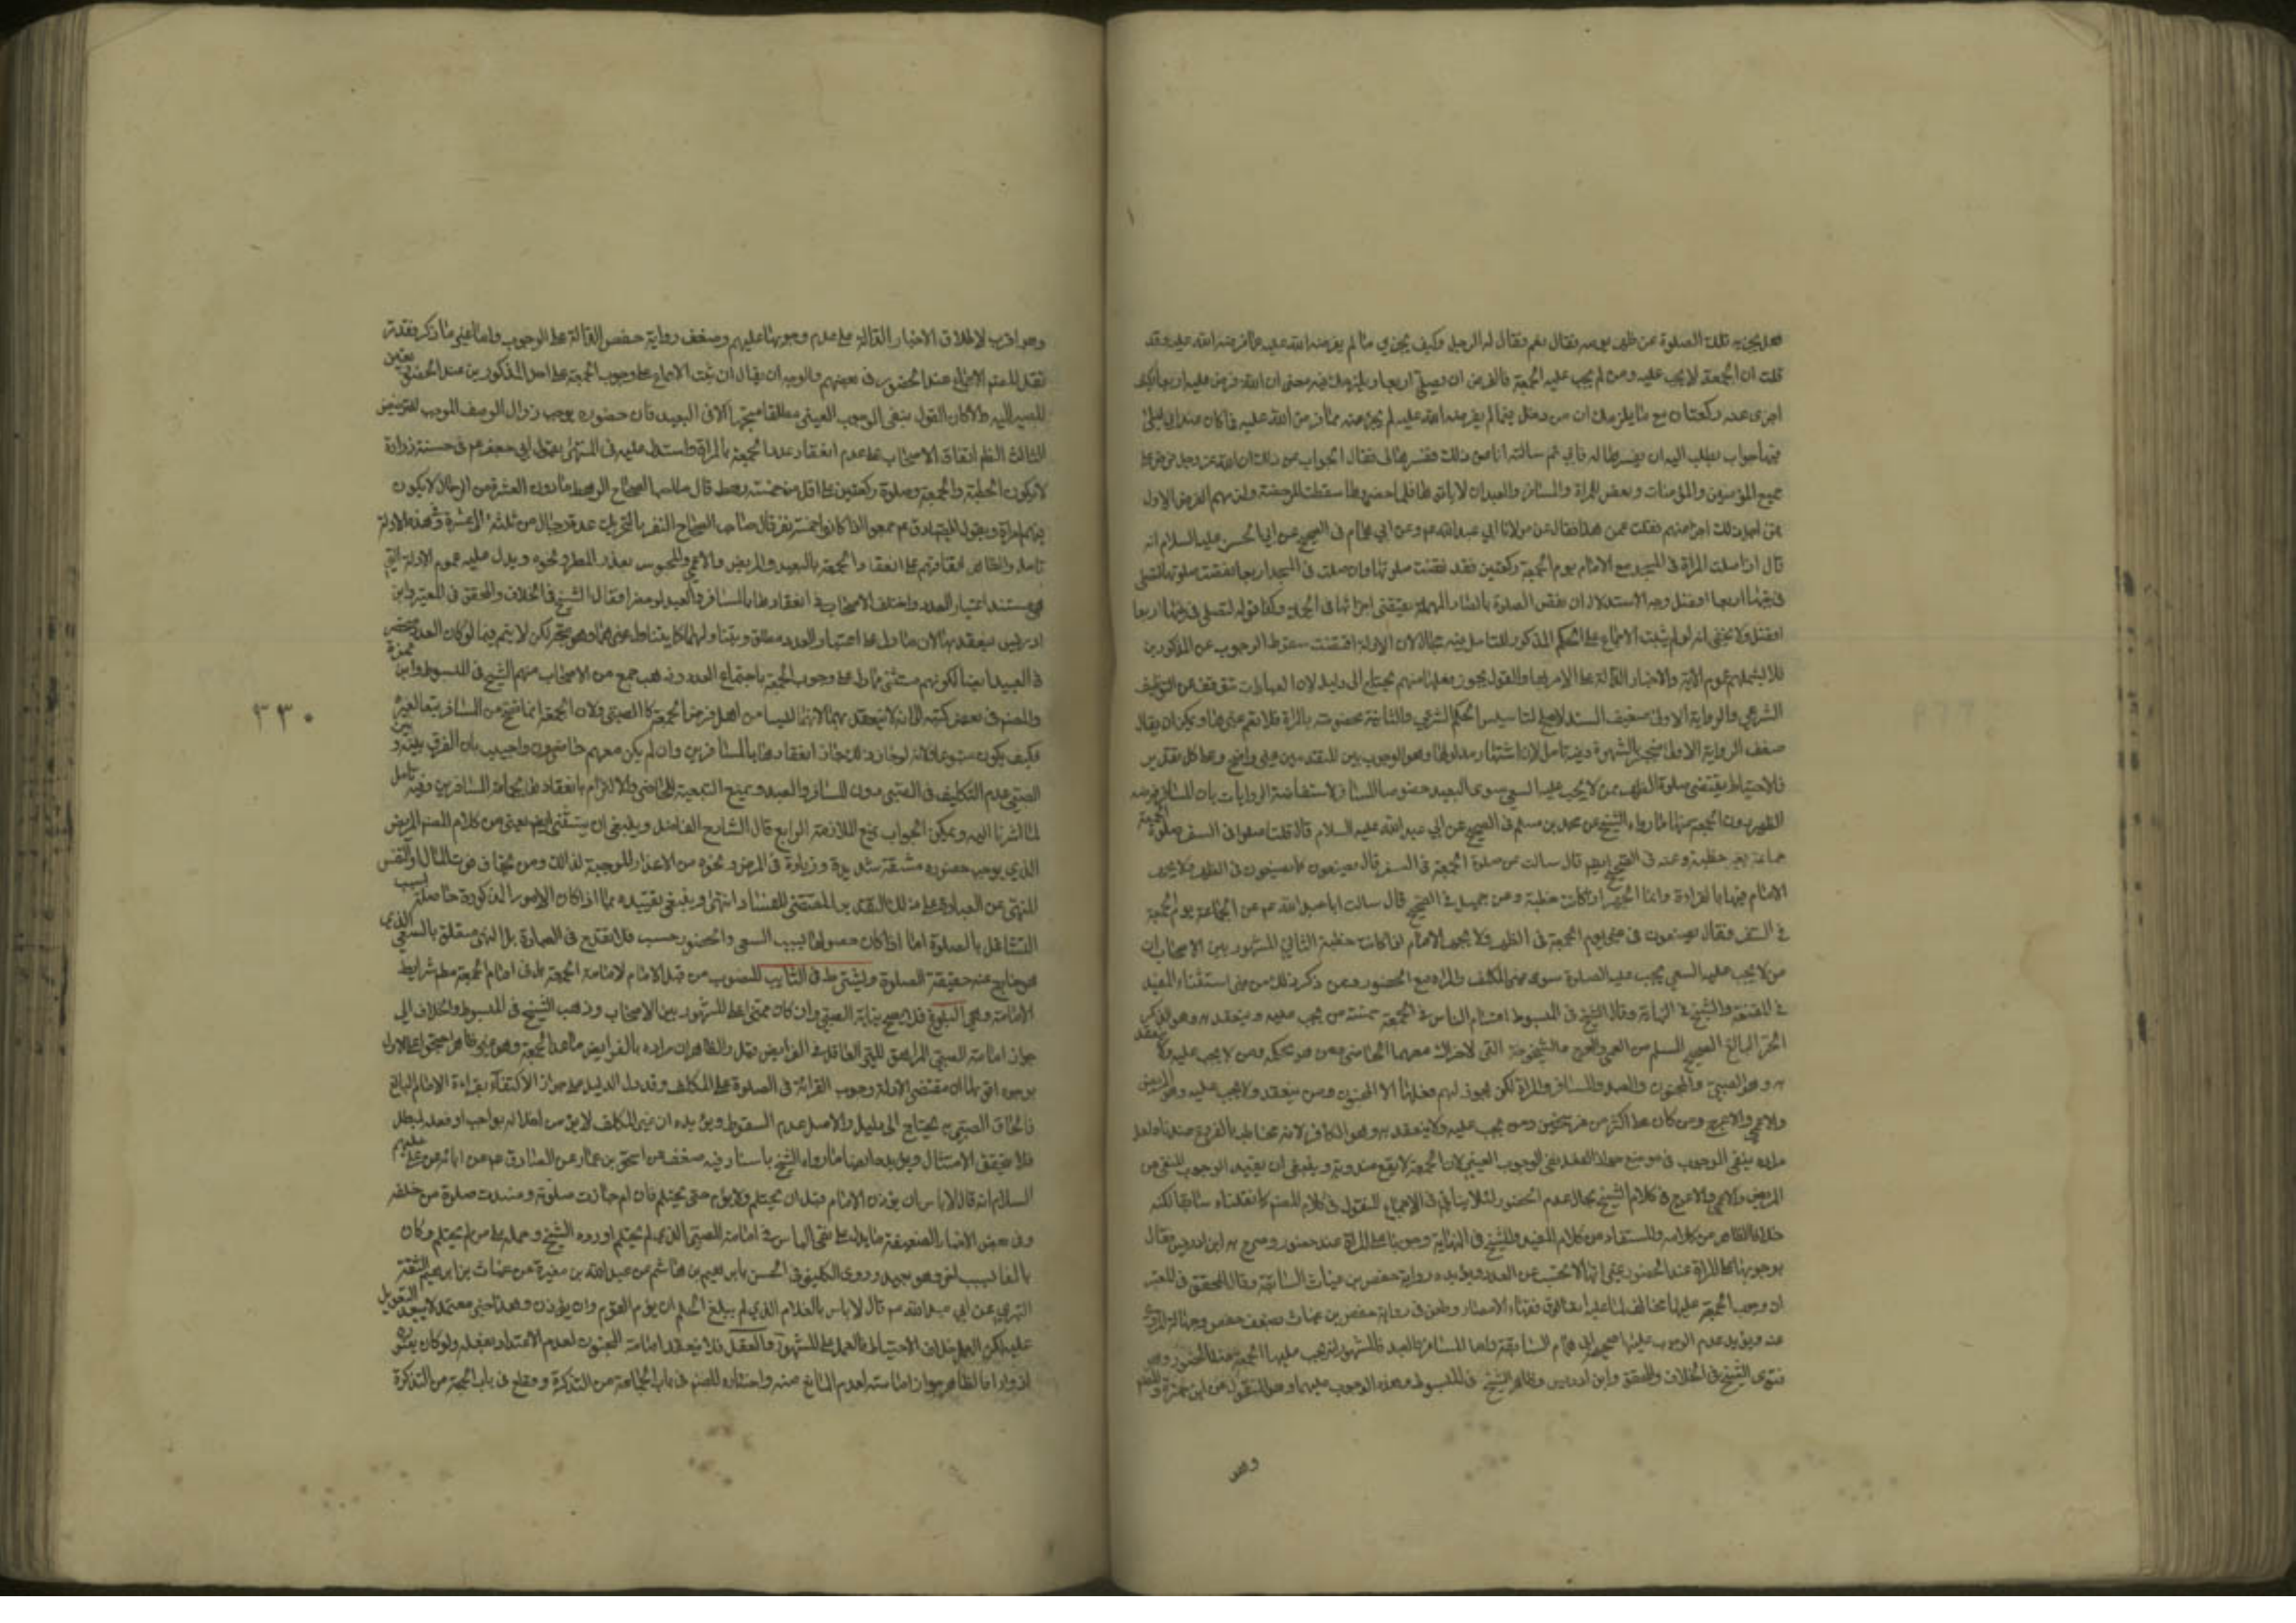 فهل يجزيه تلك الصلوة عن ظهر يومه فقال نعم فقال له الرجل وكيف يجزي ما لم يفرضه الله عليه عما فرضه الله عليه وقد
قلت ان الجمعة لا يجب عليه ومن لم يجب عليه الجمعة فالفرض ان يصلي اربعا ويلزمك فيه معنى ان الله فرض عليه اربعا فكيف
اجزى عنه ركعتان مع ما يلزمك ان من دخل فيما لم يفرضه الله عليه لم يجز عنه مما فرض الله عليه فما كان عند ابي ليلى
فيها جواب وطلب اليه ان يفسرها له فابى ثم سالته انا عن ذلك ففسرها لي فقال الجواب عن ذلك ان الله عز وجل فرض على
جميع المؤمنين والمؤمنات ورخص للمراة والمسافر والعبد ان لا ياتوها فلما حضروها سقطت الرخصة ولزمهم الفرض الاول
فمن اجل ذلك اجزا عنهم فقلت عمن هذا فقال عن مولانا ابي عبد الله عم وعن ابي همام في الصحيح عن ابي الحسن عليه السلام انه
قال اذا صلت المراة في المسجد مع الامام يوم الجمعة ركعتين فقد نقصت صلوتها وان صلت في المسجد اربعا نقصت صلوتها لتصلي
في بيتها اربعا افضل وجه الاستدلال ان نقص الصلوة بالصاد المهملة يقتضي اجزائها في الجملة وكذا قوله لتصلي في بيتها اربعا
افضل ولا يخفى انه لو لم يثبت الاجماع على الحكم المذكور للتامل فيه مجال لان الادلة اقتضت سقوط الوجوب عن المذكورين
فلا يشملهم عموم الآية والاخبار الدالة على الامر بها والقول بجواز فعلها منهم يحتاج الى دليل لان العبادات تتوقف على التوظيف
الشرعي والرواية الاولى ضعيف السند لا يصلح لتاسيس الحكم الشرعي والثانية مخصوصة بالمراة فلا تعم غيرها ويمكن ان يقال
ضعف الرواية الاولى منجبر بالشهرة وفيه تامل لان اشتهار مدلولها وهو الوجوب بين المتقدمين غير واضح وعلى كل تقدير
فالاحتياط يقتضي صلوة الظهر ممن لا يجب عليه السعي سوى البعيد خصوصا المسافر لاستفاضة الروايات بان المسافر فرضه
الظهر دون الجمعة منها ما رواه الشيخ عن محمد بن مسلم في الصحيح عن ابي عبد الله عليه السلام قال قال لنا صلوا في السفر صلوة الجمعة
جماعة بغير خطبة وعنه في الصحيح ايضا قال سالت عن صلوة الجمعة في السفر قال تصنعون كما تصنعون في الظهر ولا يجهر
الامام فيها بالقراءة وانما يجهر اذا كانت خطبة وعن جميل في الصحيح قال سالت ابا عبد الله عم عن الجماعة يوم الجمعة
في السفر فقال تصنعون كما تصنعون في غير يوم الجمعة في الظهر ولا يجهر الامام انما يجهر اذا كانت خطبة الثاني المشهور بين الاصحاب ان
من لا يجب عليه السعي يجب عليه الصلوة سوى غير المكلف والمراة مع الحضور وممن ذكر ذلك من غير استثناء المفيد
في المقنعة والشيخ في النهاية وقال الشيخ في المبسوط اقسام الناس في الجمعة خمسة من يجب عليه وينعقد به وهو الذكر
الحر البالغ الصحيح المسلم من العمى والعرج والشيخوخة التي لا حراك معها الحاضر ومن هو بحكمه ومن لا يجب عليه ولا ينعقد
به وهو الصبي والمجنون والعبد والمسافر والمراة لكن يجوز لهم فعلها الا المجنون ومن ينعقد ولا يجب عليه وهو المريض
والاعمى والاعرج ومن كان على اكثر من فرسخين ومن يجب عليه ولا ينعقد به وهو الكافر لانه مخاطب بالفروع عندنا ولعل
مراده بنفي الوجوب في موضع جواز الفعل نفي الوجوب العيني لان الجمعة لا يقع مندوبة وينبغي ان يقيد الوجوب المنفي عن
المريض والاعمى والاعرج في كلام الشيخ بحال عدم الحضور لئلا ينافي الاجماع المنقول في كلام المصنف كما نقلناه سابقا لكنه
خلاف الظاهر من كلامه والمستفاد من كلام المفيد والشيخ في النهاية وجوبها على المراة عند حضور وصرح به ابن ادريس فقال
بوجوبها على المراة عند الحضور غير انها لا تحسب من العدد ويؤيده رواية حفص بن غياث السابقة وقال المحقق في المعتبر
ان وجوب الجمعة عليها مخالف لما عليه اتفاق فقهاء الامصار وطعن في رواية حفص بن غياث بضعف حفص وجهالة الراوي
عنه ويؤيد عدم الوجوب عليها صحيحة ابي همام السابقة واما المسافر والعبد فالمشهور انه يجب عليهما الجمعة عند الحضور وهو
فتوى الشيخ في الخلاف والمحقق وابن ادريس وظاهر الشيخ في المبسوط عدم الوجوب عليهما وهو المنقول عن ابن حمزة والمصنف
وهو
وهو اقرب لاطلاق الاخبار الدالة على عدم وجوبها عليهم وضعف رواية حفص الدالة على الوجوب واما غير ما ذكر فقد
نقل المصنف الاجماع عند الحضور في بعضهم والوجه ان يقال ان ثبت الاجماع على وجوب الجمعة على احد المذكورين عند الحضور تعين
المصير اليه والا كان القول بنفي الوجوب العيني مطلقا متجها الا في البعيد فان حضوره يوجب زوال الوصف الموجب للترخيص
الثالث الظاهر اتفاق الاصحاب على عدم انعقاد عدد الجمعة بالمراة واستدل عليه في المنتهى بقول ابي جعفر عم في حسنة زرارة
لا يكون الخطبة والجمعة وصلوة ركعتين على اقل من خمسة رهط قال صاحب الصحاح الرهط ما دون العشرة من الرجال لا يكون
فيهم امراة وبقول الصادق عم يجمعوا اذا كانوا خمسة نفر قال صاحب الصحاح النفر بالتحريك عدة رجال من ثلثة الى عشرة وفي هذه الادلة
تامل والظاهر اتفاقهم على انعقاد الجمعة بالبعيد والمريض والاعمى والمحبوس بعذر المطر ونحوه ويدل عليه عموم الادلة التي
هي مستند اعتبار العدد واختلف الاصحاب في انعقادها بالمسافر والعبد لو حضرا فقال الشيخ في الخلاف والمحقق في المعتبر وابن
ادريس ينعقد بهما لان ما دل على اعتبار العدد مطلق ويتناولهما كما يتناول غيرهما وهو متجه لكن لا يتم فيما لو كان العدد منحصر
في العبيد ايضا لكونهم مستثنى مما دل على وجوب الجمعة باجتماع العدد وذهب جمع من الاصحاب منهم الشيخ في المبسوط وابن حمزة
والمصنف في بعض كتبه الى انه لا ينعقد بهما لانهما ليسا من اهل فرض الجمعة كالصبي ولان الجمعة انما تصح من المسافر تبعا لغيره
فكيف يكون متبوعا ولانه لو جاز ذلك جاز انعقادها بالمسافرين وان لم يكن معهم حاضرون واجيب بان الفرق بينه وبين
الصبي عدم التكليف في الصبي دون المسافر والعبد ويمنع التبعية للحاضر والالتزام بانعقادها بجماعة المسافرين وفيه تامل
لما اشرنا اليه ويمكن الجواب بمنع الملازمة الرابع قال الشارح الفاضل وينبغي ان يستثنى ايضا يعني من كلام المصنف المريض
الذي يوجب حضوره مشقة شديدة وزيادة في المرض ونحوه من الاعذار الموجبة لذلك ومن يخاف فوت المال او النفس
للنهي عن العبادة على ذلك التقدير المقتضي للفساد انتهى وينبغي تقييده بما اذا كان الامور المذكورة حاصلة بسبب
التشاغل بالصلوة اما اذا كان حصولها بسبب السعي والحضور حسب فلا يقدح في العبادة بل النهي متعلق بالسعي الذي
هو خارج عن حقيقة الصلوة ويشترط في النايب المنصوب من قبل الامام لامامة الجمعة بل في امام الجمعة مطلقا شرايط
الامامة وهي البلوغ فلا يصح نيابة الصبي وان كان مميزا على المشهور بين الاصحاب وذهب الشيخ في المبسوط والخلاف الى
جواز امامة الصبي المراهق المميز العاقل في الفرايض وقيل والظاهر ان مراده بالفرايض ما عدا الجمعة وهو غير ظاهر احتجوا على الاول
بوجوه اقويها ان مقتضى الادلة وجوب القرائة في الصلوة على المكلف وقد دل الدليل على جواز الاكتفاء بقراءة الامام البالغ
فالحاق الصبي به يحتاج الى دليل والاصل عدم السقوط ويؤيده ان غير المكلف لا يؤمن من اخلاله بواجب او فعله لمبطل
فلا يتحقق الامتثال ويؤيده ايضا ما رواه الشيخ باسناد فيه ضعف عن اسحق بن عمار عن الصادق عم عن ابائه عن علي عليهم
السلام انه قال لا باس ان يؤذن الغلام قبل ان يحتلم ولا يؤم حتى يحتلم فان ام جازت صلوته وفسدت صلوة من خلفه
وفي بعض الاخبار الضعيفة ما يدل على نفي الباس في امامة الصبي الذي لم يحتلم اورده الشيخ وحمله على من لم يحتلم وكان
بالغا بسبب اخر وهو بعيد وروى الكليني في الحسن بابرهيم بن هاشم عن عبد الله بن مغيرة عن غياث بن ابرهيم الثقة
البتري عن ابي عبد الله عم قال لا باس بالغلام الذي لم يبلغ الحلم ان يؤم القوم وان يؤذن وهذا خبر معتمد لا يبعد التعويل
عليه لكن العمل خلاف الاحتياط فالعمل على المشهور والعقل فلا ينعقد امامة المجنون لعدم الاعتداد بفعله ولو كان يعتوره
ادوارا فالظاهر جواز امامته لعدم المانع منه واختاره المصنف في باب الجماعة من التذكرة وقطع في باب الجمعة من التذكرة
٣٣٠